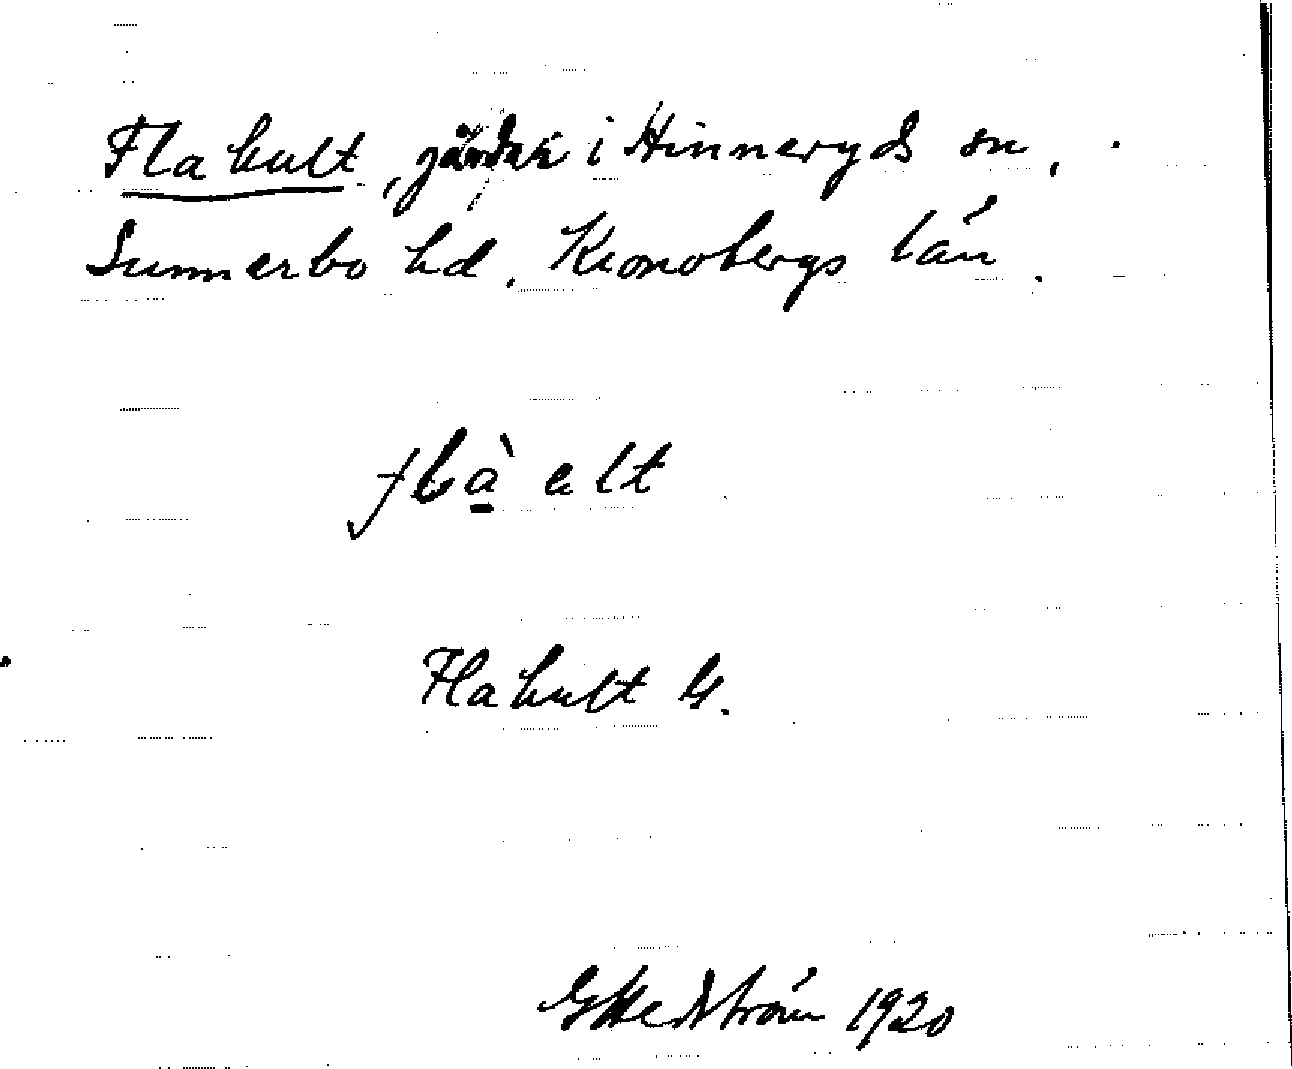 Flahult, i Hinneryds sn,
Sunnerbo hd, Kronobergs län.
Flahult G.
G Hedström 1920